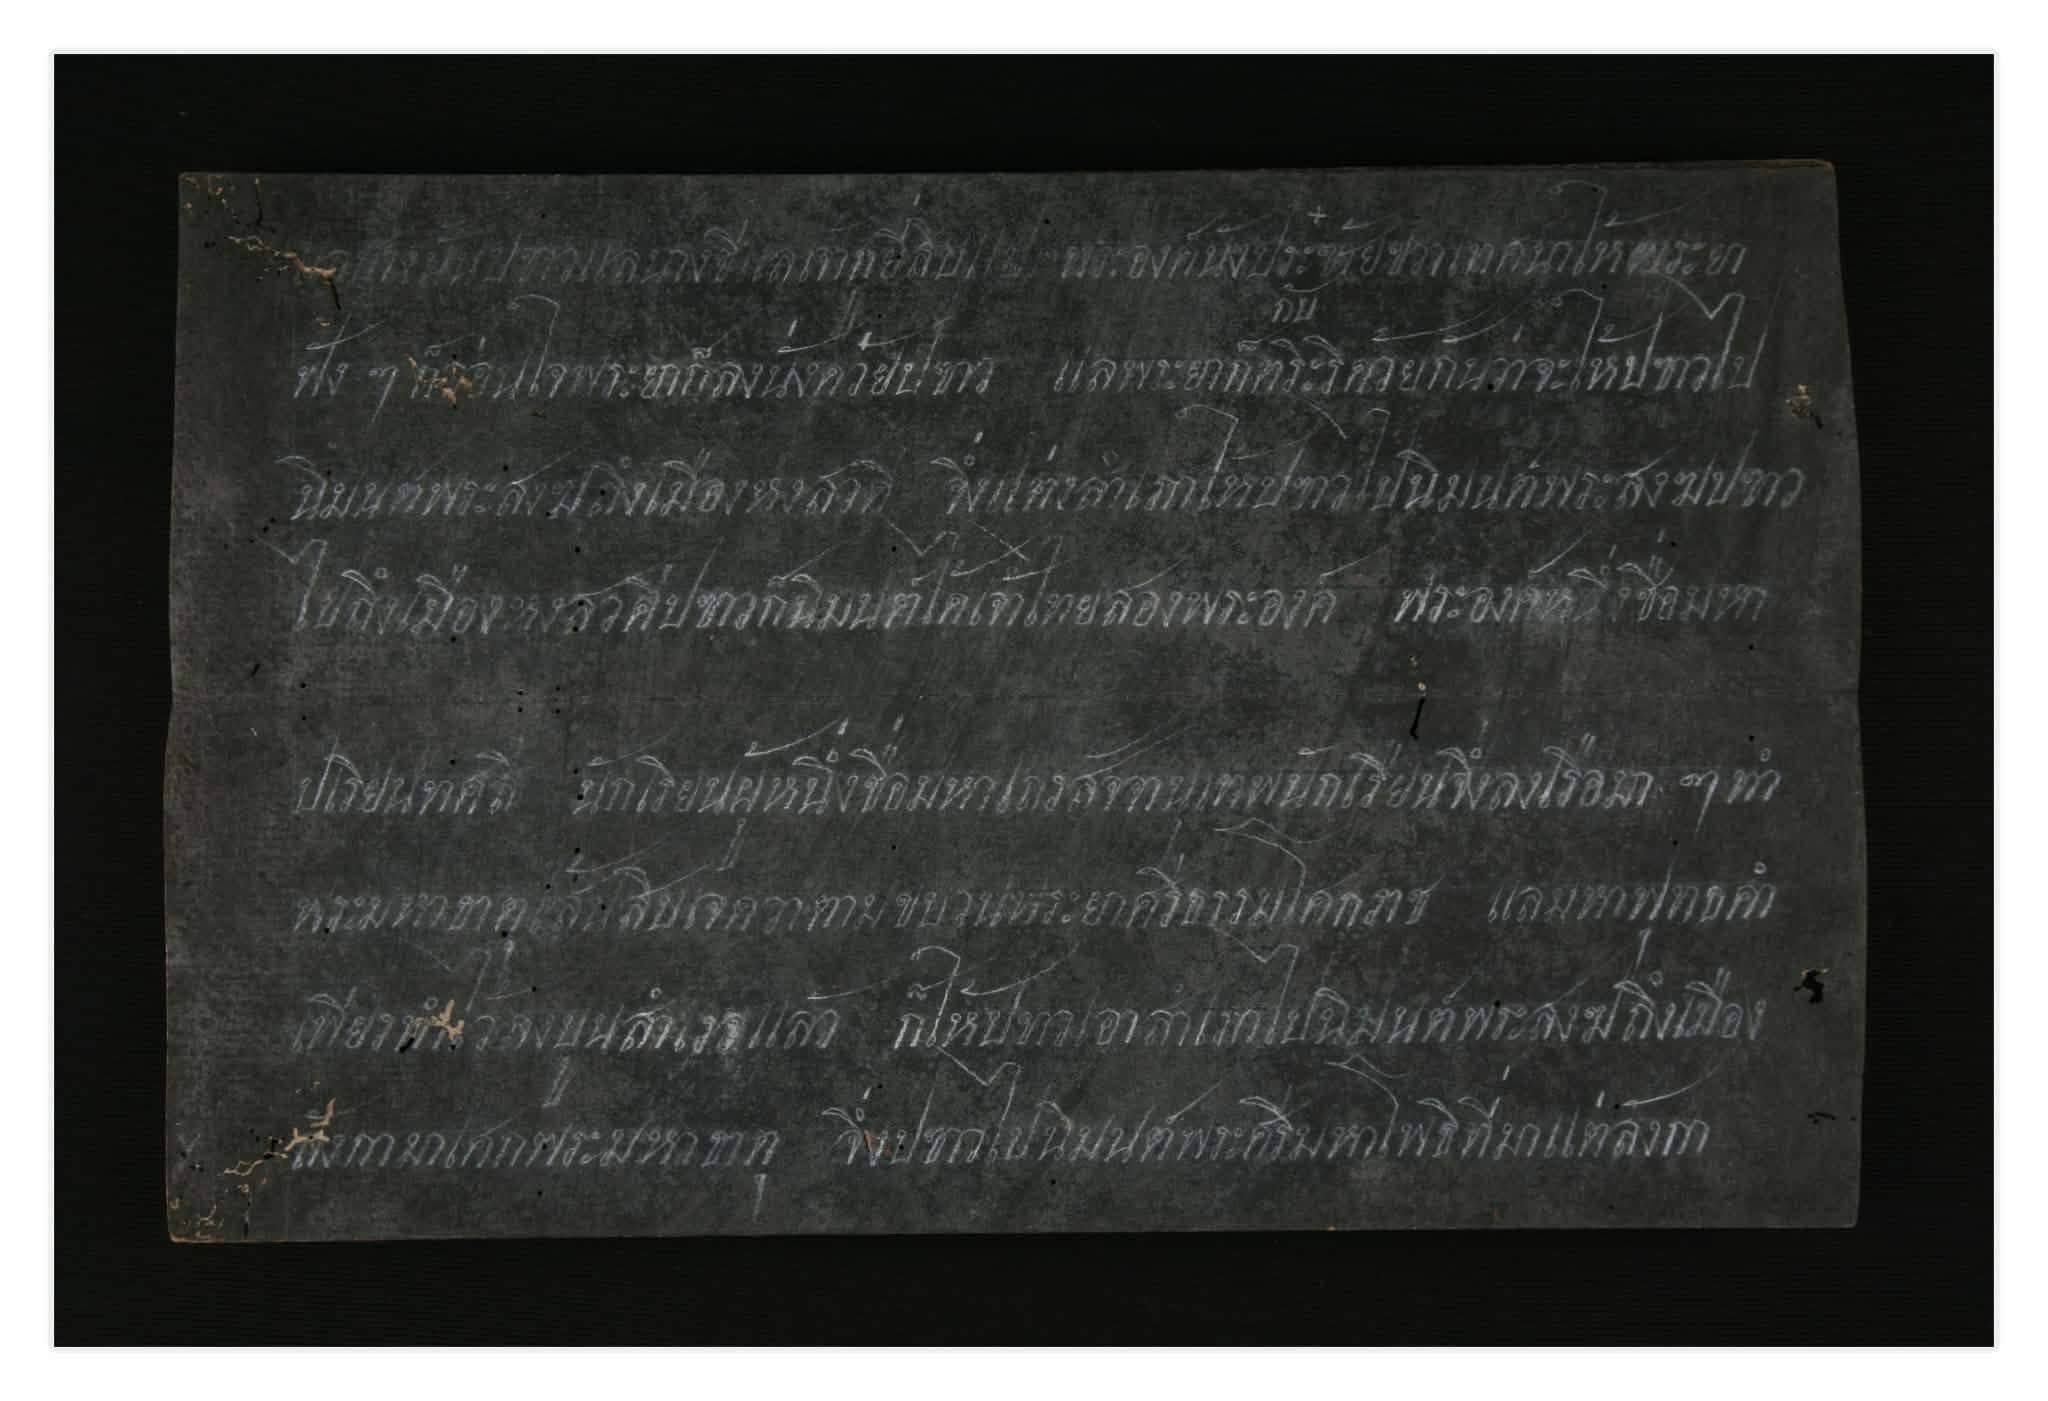 พระองคนั่งประหัยชวาเทศนาใหพระยา
ฟัง ๆ ก็อ่อนใจพระยาก็ลงนั่งด้วยปขาว แลพระยาก็ตรึะรึด้วยกันกับว่าจะให้ปขาวไป
นิมนต์พระสงฆถึงเมืองหงสาวดี จึ่งแต่งสำเภาให้ปขาวไปนิมนต์พระสงฆปขาว
ไปถึงเมืองหงสวดีปขาวก็นิมนต์ได้เจ้าไทยสองพระองค์ พระองค์หนึ่งชื่อมหา
ปเรียนทศศี นักเรียนผู้หนึ่งชื่อมหาเถรสัจานุเทพนักเรียนจึ่งลงเรือมา ๆ ทำ
พระมหาธาตุแล้วสิบเจดวาตามขบวนพระยาศรีธรรมโศกราช แลมหาพุทธคำ
เภียรทำ ลงบนสำเรจแล้ว ก็ให้ปขาวเอาสำเภาไปนิมนต์พระสงฆถึงเมือง
ลังกามาเสกพระมหาธาตุ จึ่งปขาวไปนิมนต์พระศรีมหาโพธิที่มาแต่ลังกา